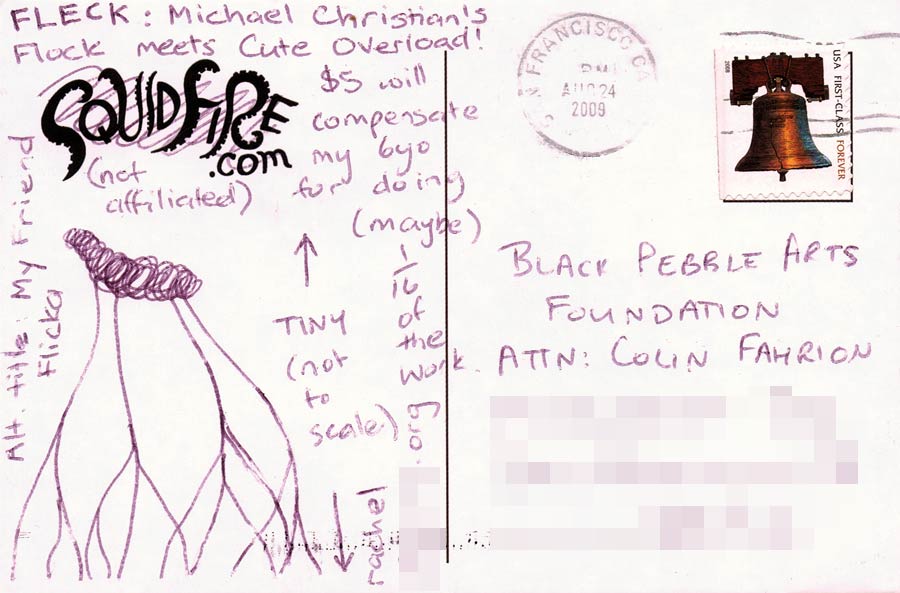 FLECK : Michael Christian's
Flock meets Cute Overload!
SQUIDFIRE
.com
(not
affiliated)
$5 will
compensate
my 6yo
for doing
(maybe)
1/16
of
the
work.
TINY
(not
to
scale)
Alt. title: My Friend
Flicka
rachel
.org
SAN FRANCISCO CA
PM
AUG 24
2009
USA FIRST-CLASS FOREVER
2008
BLACK PEBBLE ARTS
FOUNDATION
ATTN: COLIN FAHRION